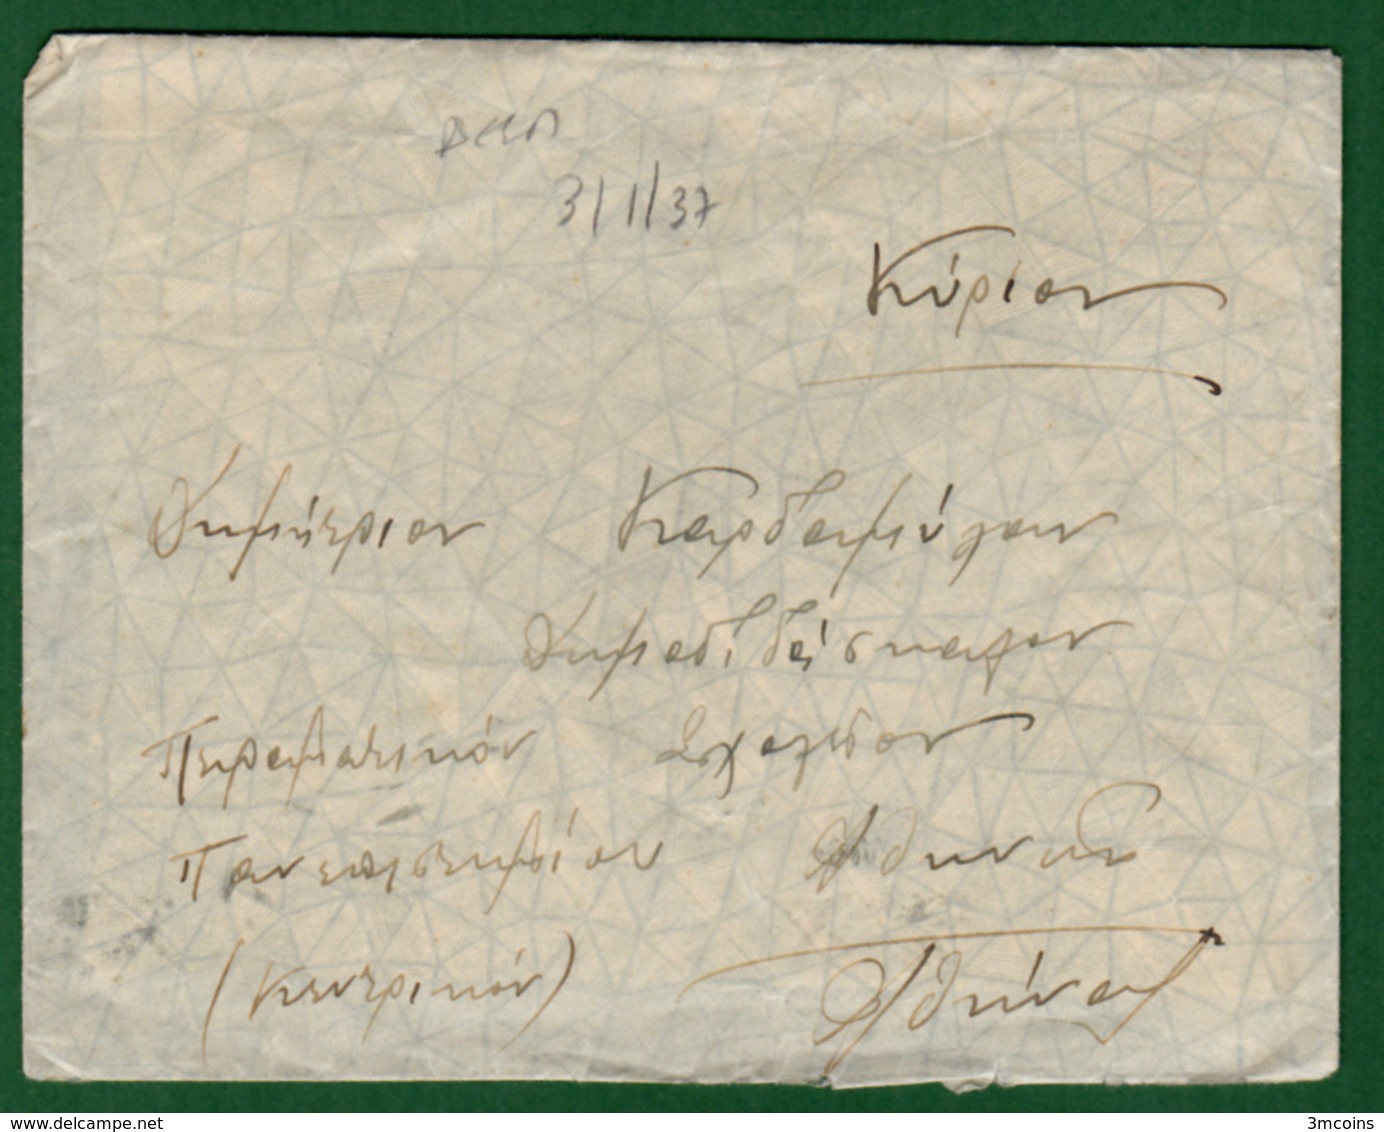 3/1/37
Κύριον
Δημήτριον Καρδαμύλαν
Δημοδιδάσκαλον
Πειραματικόν Σχολείον
Πανεπιστημίου Αθηνών
(Κεντρικόν) Αθήνας
www.delcampe.net
3mcoins